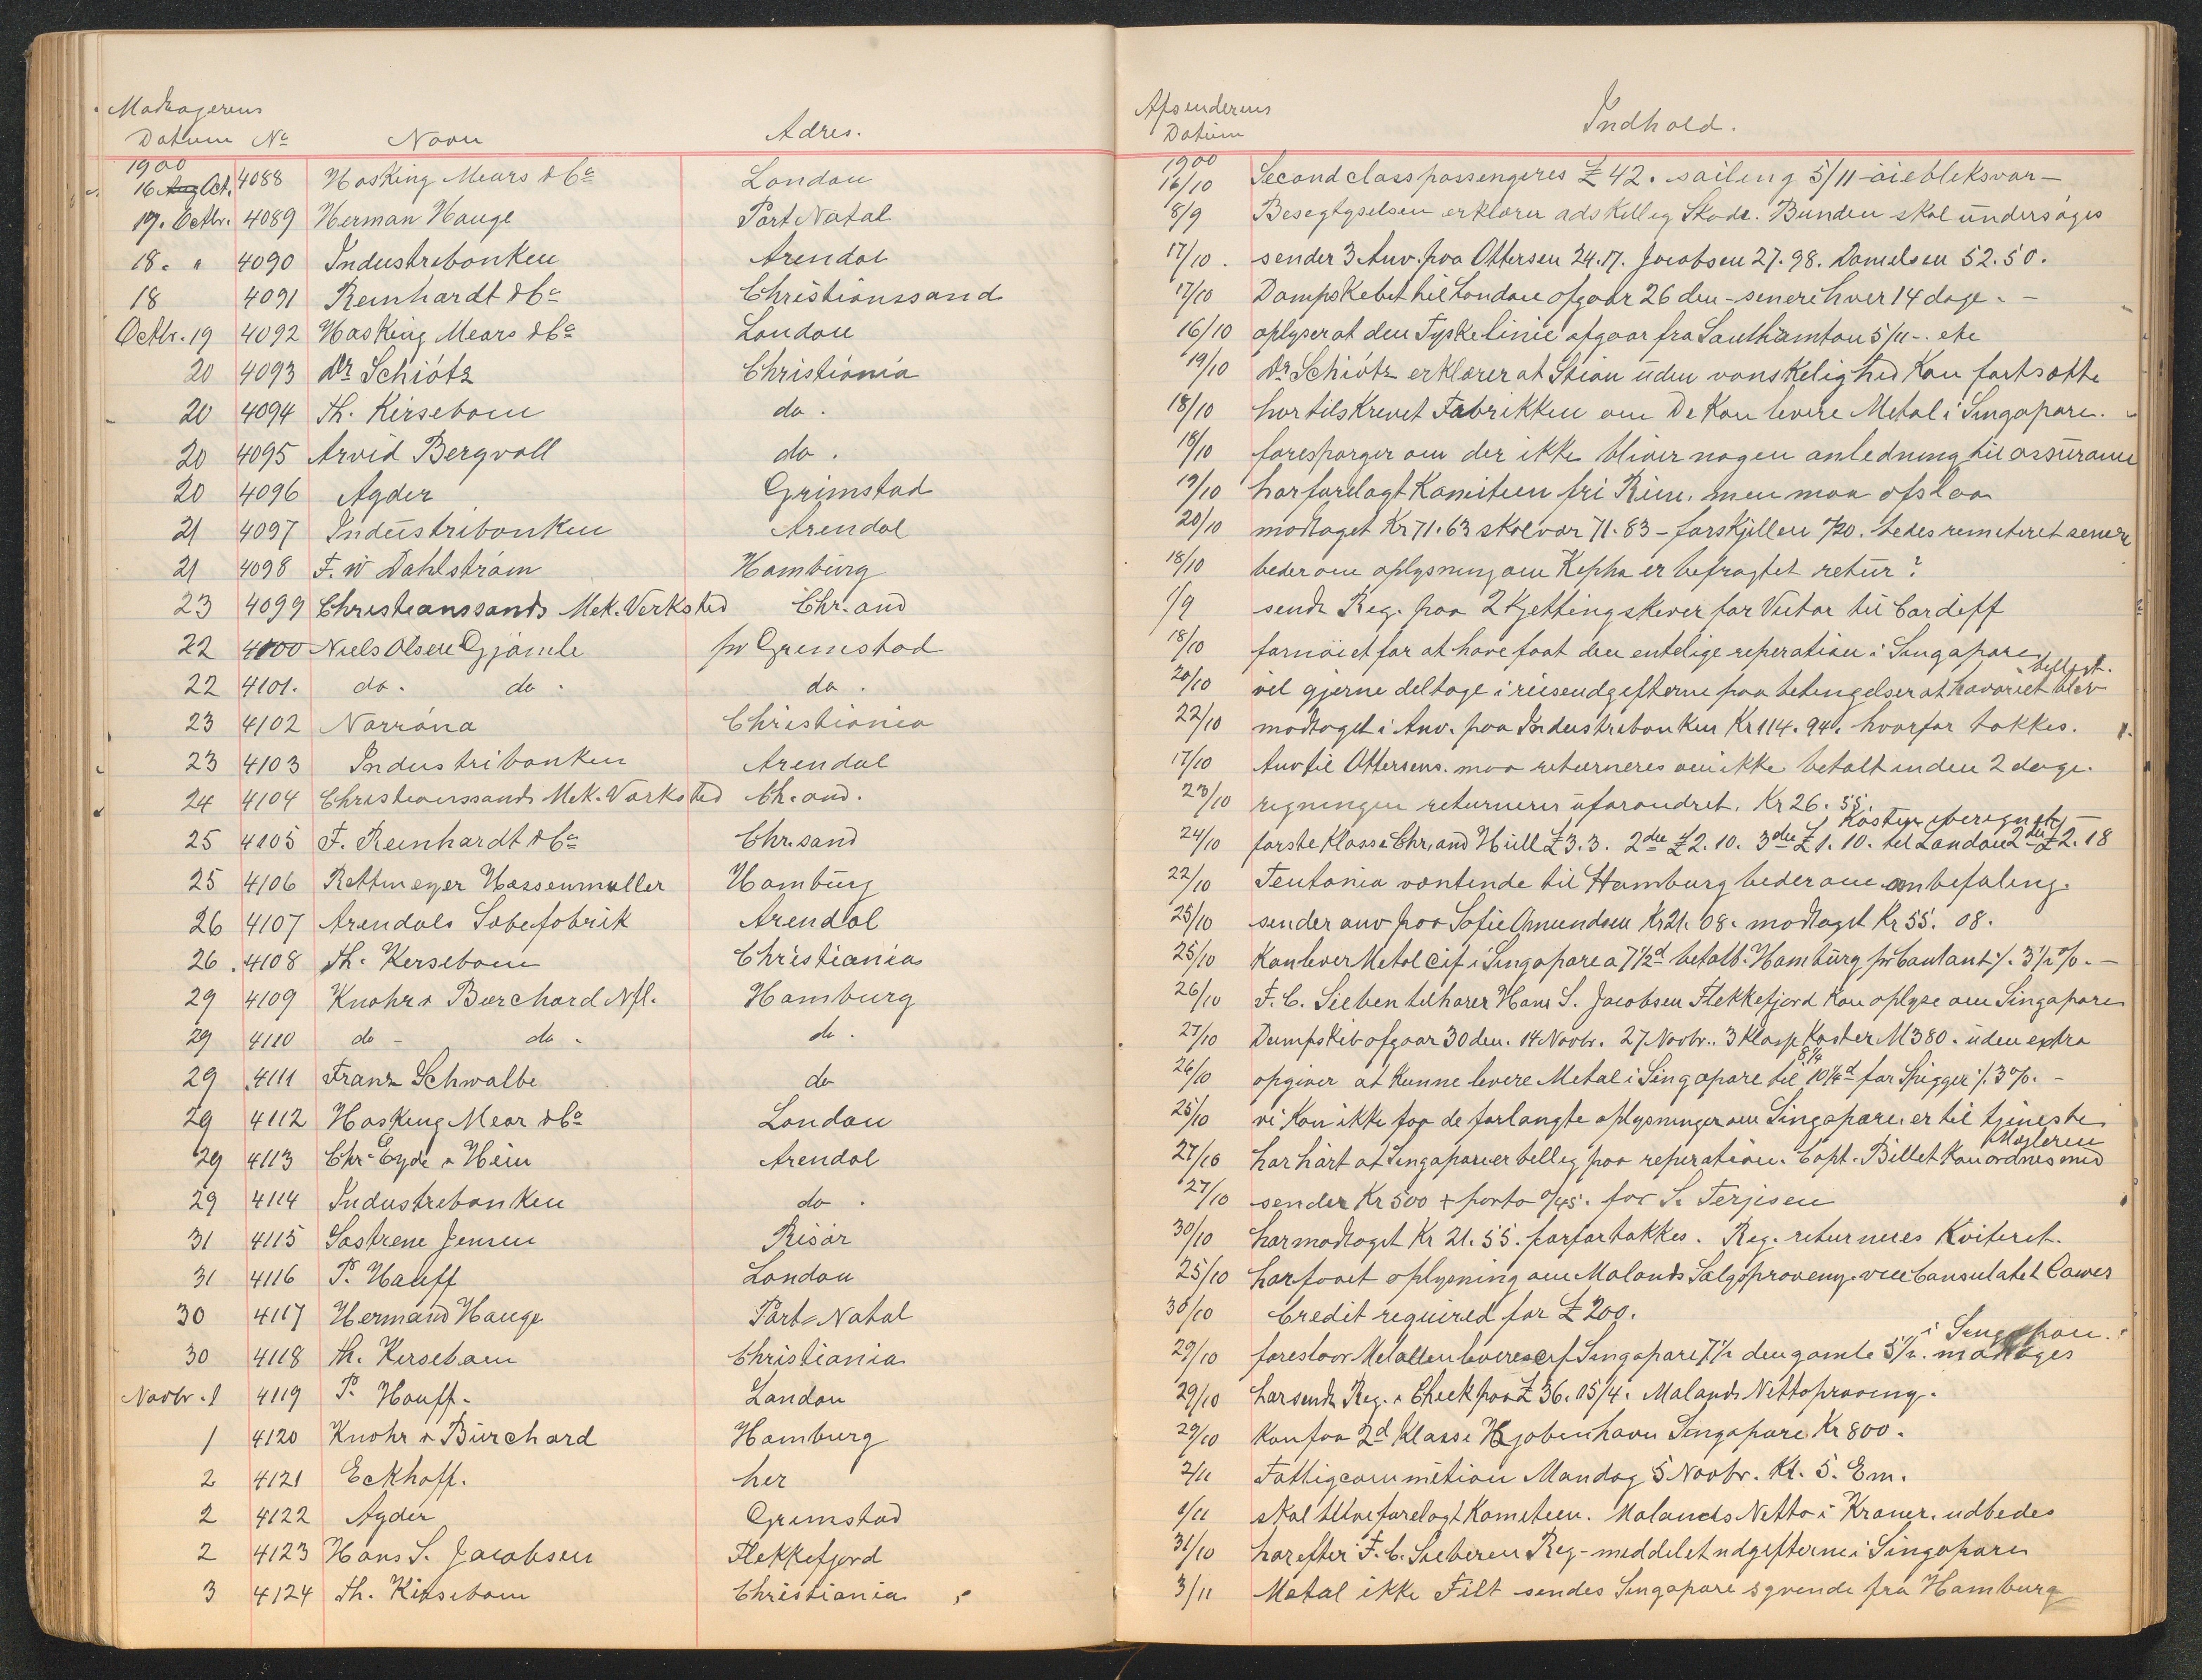 Modtagerens
Datum No Navn Adres.
1900
16 Aug Oct. 4088 Hosking Mears & Co London
17. Octbr. 4089 Herman Hauge Port Natal
18. " 4090 Industribanken Arendal
18 4091 Reinhardt & Co Christianssand
Octbr. 19 4092 Hosking Mears & Co London
20 4093 Dr Schiötz Christiania
20 4094 Th. Kirsebom do.
20 4095 Arvid Bergvall do.
20 4096 Agder Grimstad
21 4097 Industribanken Arendal
21 4098 F. W Dahlström Hamburg
23 4099 Christianssands Mek. Verksted Chr. and
22 4100 Niels Olsen Gjömle pr Grimstad
22 4101. do. do. do.
23 4102 Norröna Christiania
23 4103 Industribanken Arendal
24 4104 Christianssands Mek. Værksted Ch. and.
25 4105 F. Reinhardt & Co Chr. sand
25 4106 Rettmeyer Hassenmuller Hamburg
26 4107 Arendals Sæbefabrik Arendal
26. 4108 Th. Kirsebom Christiania
29 4109 Knohr & Burchard Nfl. Hamburg
29 4110 do - do. do.
29 4111 Franz Schwalbe do
29 4112 Hosking Mear & Co London
29 4113 Chr. Eyde & Hein Arendal
29 4114 Industribanken do.
31 4115 Söstrene Jensen Risör
31 4116 P. Hauff London
30 4117 Hermand Hauge Port-Natal
30 4118 Th. Kirsebom Christiania
Novbr. 1 4119 P. Hauff. London
1 4120 Knohr & Burchard Hamburg
2 4121 Eckhoff. her
2 4122 Agder Grimstad
2 4123 Hans S. Jacobsen Flekkefjord
3 4124 Th. Kirsebom Christiania
Afsenderens
Datum Indhold.
1900
16/10 Second class passengeres £ 42. sailing 5/11 - öiebliksvar -
8/9 Besegtyselsen erklærer adskillig Skade. Bunden skal undersöges
17/10. sender 3 Anv. paa Ottersen 24.17. Jacobsen 27.98. Danielsen 52.50.
17/10 Dampskibet til London afgaar 26 den - senere hver 14 dage. -
16/10 oplyser at den Tyske linie afgaar fra Southamton 5/11 -. etc
19/10 Dr Schiötz erklærer at Stian uden vanskelighed kan fortsætte
18/10 har tilskrevet Fabrikken om De kan levere Metal i Singapore.
18/10 forespörger om der ikke bliver nogen anledning til assurance
19/10 har forelagt Komiteen fri Reise, men maa afslaa
20/10 modtaget Kr 71.63 skal vær 71.83 - forskjellen 0/20. bedes remiteret senere
18/10 beder om oplysning om Kepha er befragtet retur?
1/9 sendt Reg. paa 2 Kjettingskiver for Victor til Cardiff
18/10 fornöiet for at have faat den entelige reperation i Singapore
20/10 vil gjerne deltage i reiseudgifterne paa betingelser at havariet blev billigt.
22/10 modtaget i Anv. paa Industribanken Kr 114.94. hvorfor takkes.
17/10 Anv til Ottersens. maa returneres om ikke betalt inden 2 dage.
23/10 regningen returneres uforandret. Kr 26.55.
24/10 förste Klasse Chr. and Hull £ 3.3. 2den £ 2.10. 3die £ 1.10. til London 2den £ 2.18 Kosten iberegnet -
22/10 Teutonia ventende til Hamburg beder om anbefaling.
25/10 sender anv paa Sofie Amundsen Kr 21.08. modtaget Kr 55.08.
25/10 Kan lever Metal cif i Singapore a 7 1/2d betalb. Hamburg pr Contant ./. 3 1/2 %. -
26/10 F. C. Sieben tilhörer Hans S. Jacobsen Flekkefjord kan oplyse om Singapore
27/10 Dampskib afgaar 30 den. 14 Novbr. 27 Novbr.. 3 Klasse Koster M 380. uden extra
26/10 opgiver at kunne levere Metal i Singapore til 8 1/4 10 1/4d for Spigger ./. 3 %. -
25/10 vi kan ikke faa de forlangte oplysninger om Singapore er til tjeneste
27/10 har hört at Singapore er billig paa reperation. Capt. Billet kan ordnes med Mægleren
27/10 sender Kr 500 + porto 0/45. for S. Terjesen
30/10 har modtaget Kr 21.55. forfor takkes. Reg. returneres Kviteret.
25/10 har faaet oplysning om Malands Salgsproveny. vice Consulatet Cowes
30/10 Credit required for £ 200.
29/10 foreslaar Metallen leveres cif Singapore 7 1/2 den gamle 5 1/2. modtages i Singapore.
29/10 har sendt Reg. & Check paa £ 36.05/4. Malands Nettoproveny.
29/10 Kan faa 2d Klasse Kjöbenhavn Singapore Kr 800.
2/11 Fattigcommition Mandag 5 Novbr. Kl. 5. Em.
1/11 skal blive forelagt Komiteen. Malands Netto i Kroner. udbedes
31/10 har efter F. C. Sieberen Reg- meddelet udgifterne i Singapore
3/11 Metal ikke Filt sendes Singapore sgvende fra Hamburg